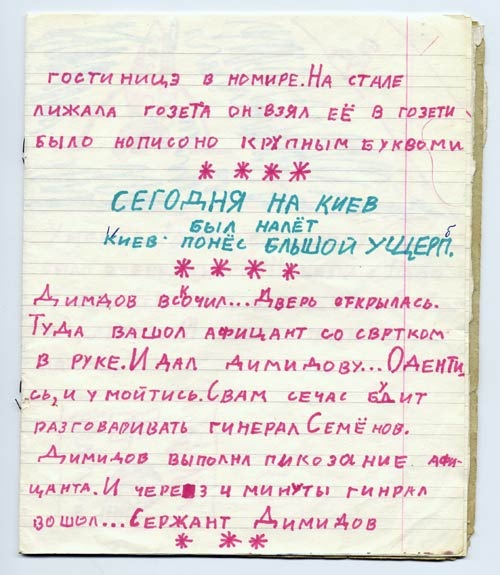 гостинице в номире. На стале
лижала гозета он взял её в гозети
было нописоно крупным буквоми
* * * *
СЕГОДНЯ НА КИЕВ
БЫЛ НАЛЁТ
КИЕВ ПОНЁС БЛЬШОЙ УЩЕРП.б
* * * *
Димдов вскочил... Дверь открылась.
Туда вашол афицант со свртком
в руке. И дал димидову... Оденти
сь, и умойтись. Свам сечас будит
разговаривать гинерал Семёнов.
Димидов выполнл пикозание афи-
цанта. И через 4 минуты гинрал
вошол... Сержант Димидов
* * *